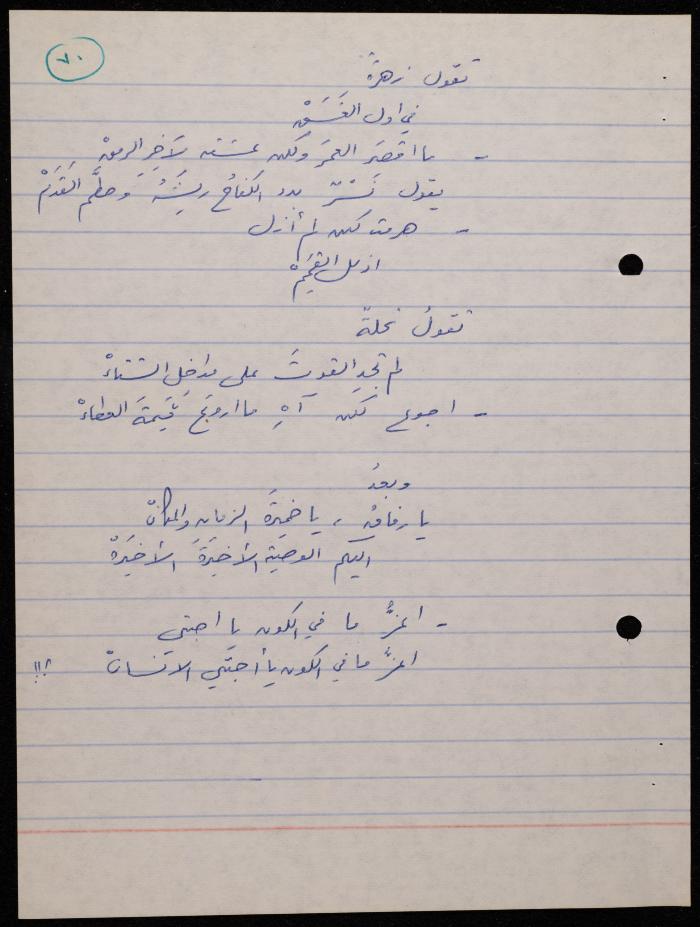 ٧٠
تقول زهرةٌ
في اول الغَسَقْ
- ما اقصَرَ العمرَ ولكن عشته لآخِرِ الرمقْ
يقول نَسْرٌ بدد الكفاحُ ريشَهُ وحطَّم القَدَمْ
- هرمت لكن لم أزل
ازمل القِمَمْ
تقولُ نحلةٌ
لم تجدِ القوتَ على مداخلِ الشتاءْ
- اجوع لكن آهِ ما اروَعَ قيمةَ العطاءْ
وبعدُ
يا رفاقُ ، يا خميرَةَ الزمانِ والمكانْ
اليكم الوصيةَ الأخيرَةَ الأخيرَةْ
- اعزُّ ما في الكون يا احبتي
اعزُّ ما في الكون يا أحبّتي الانسانْ !!!